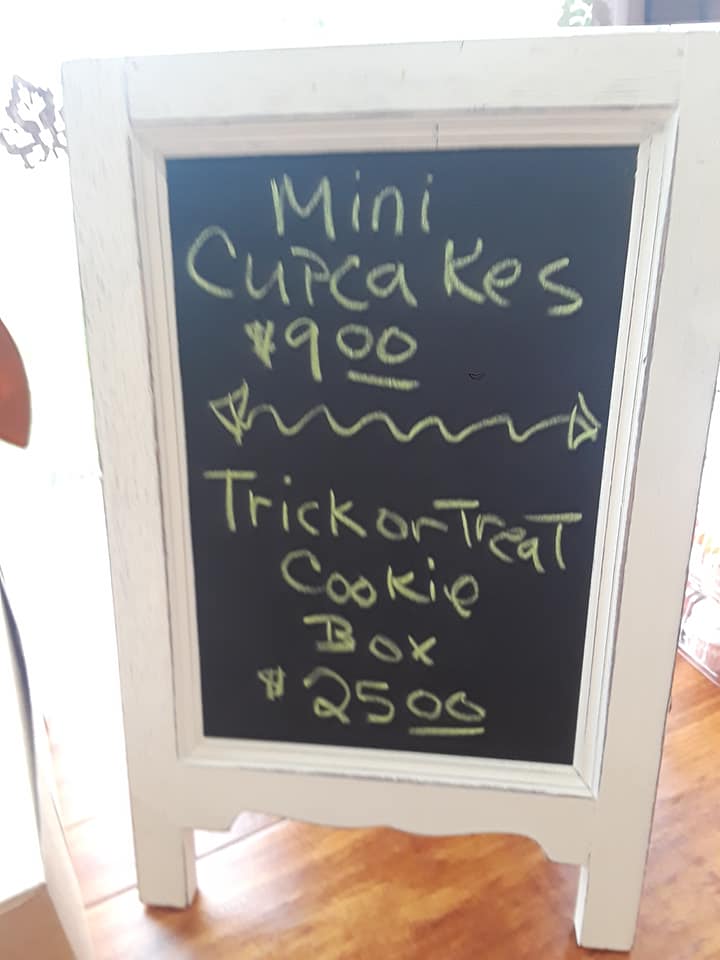 Mini
Cupcakes
$900
Trick or Treat
Cookie
Box
$2500